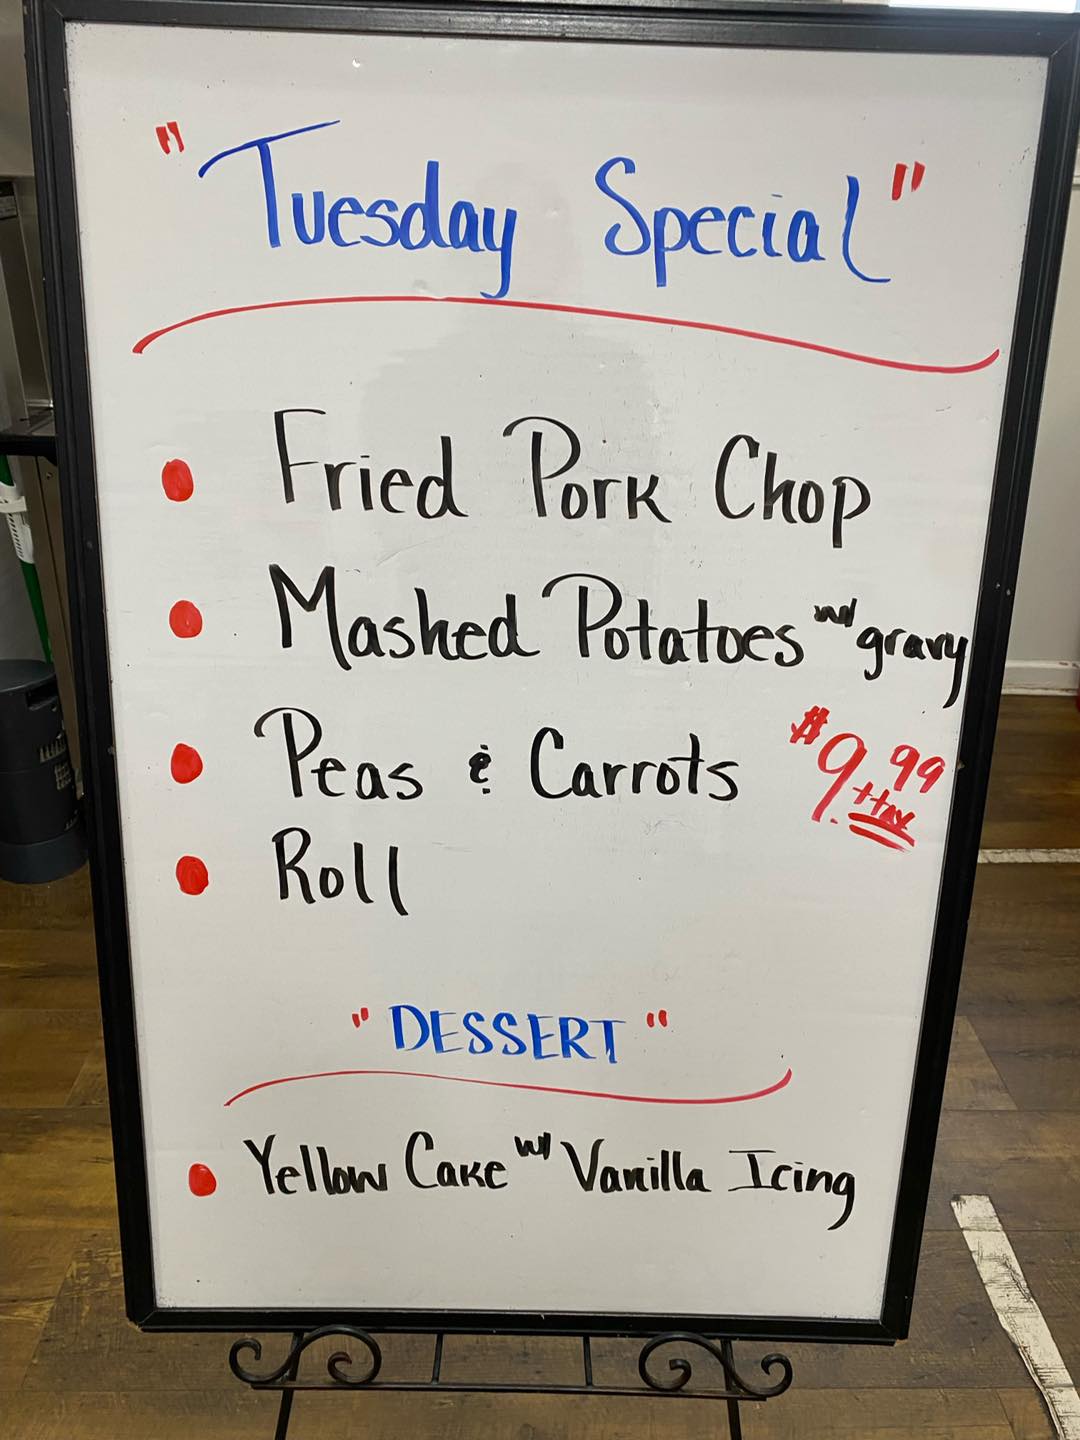 "Tuesday Special"
• Fried Pork Chop
• Mashed Potatoes w/ gravy
• Peas & Carrots
$9.99
+tax
• Roll
"DESSERT"
• Yellow Cake w/ Vanilla Icing